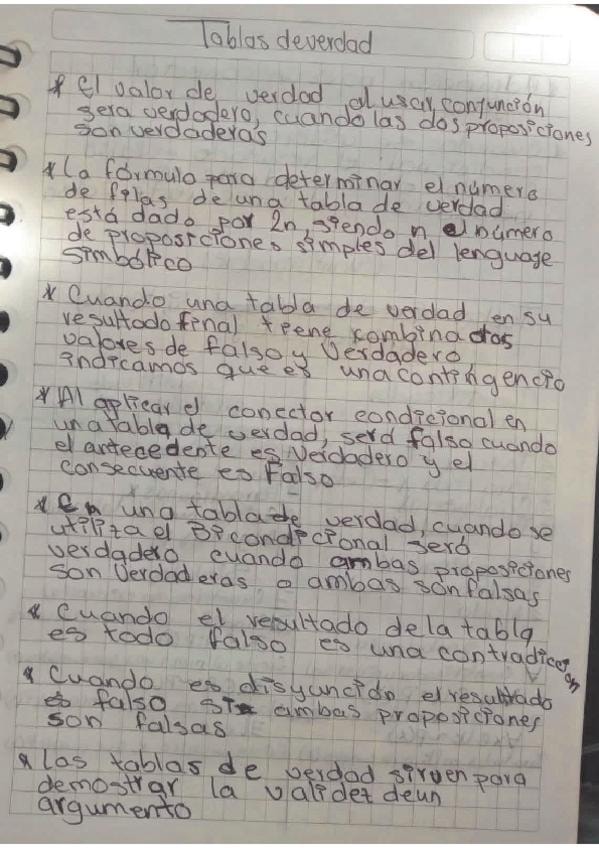 Tablas de verdad
* El valor de verdad al usar, conjunción
sera verdadero, cuando las dos proposiciones
son verdaderas
* La fórmula para determinar el número
de filas de una tabla de verdad
está dado por 2n, siendo n el número
de proposiciones simples del lenguage
simbólico
* Cuando una tabla de verdad en su
resultado final tiene combinados
valores de falso y Verdadero
indicamos que es una contingencia
* Al aplicar el conector condicional en
una tabla de verdad, será falso cuando
el antecedente es Verdadero y el
consecuente es Falso
* En una tabla de verdad, cuando se
utiliza el Bicondicional será
verdadero cuando ambas proposiciones
son Verdaderas o ambas son falsas
* Cuando el resultado de la tabla
es todo falso es una contradiccion
* Cuando es disyunción el resultado
es falso si ambas proposiciones
son falsas
* Las tablas de verdad sirven para
demostrar la validez de un
argumento